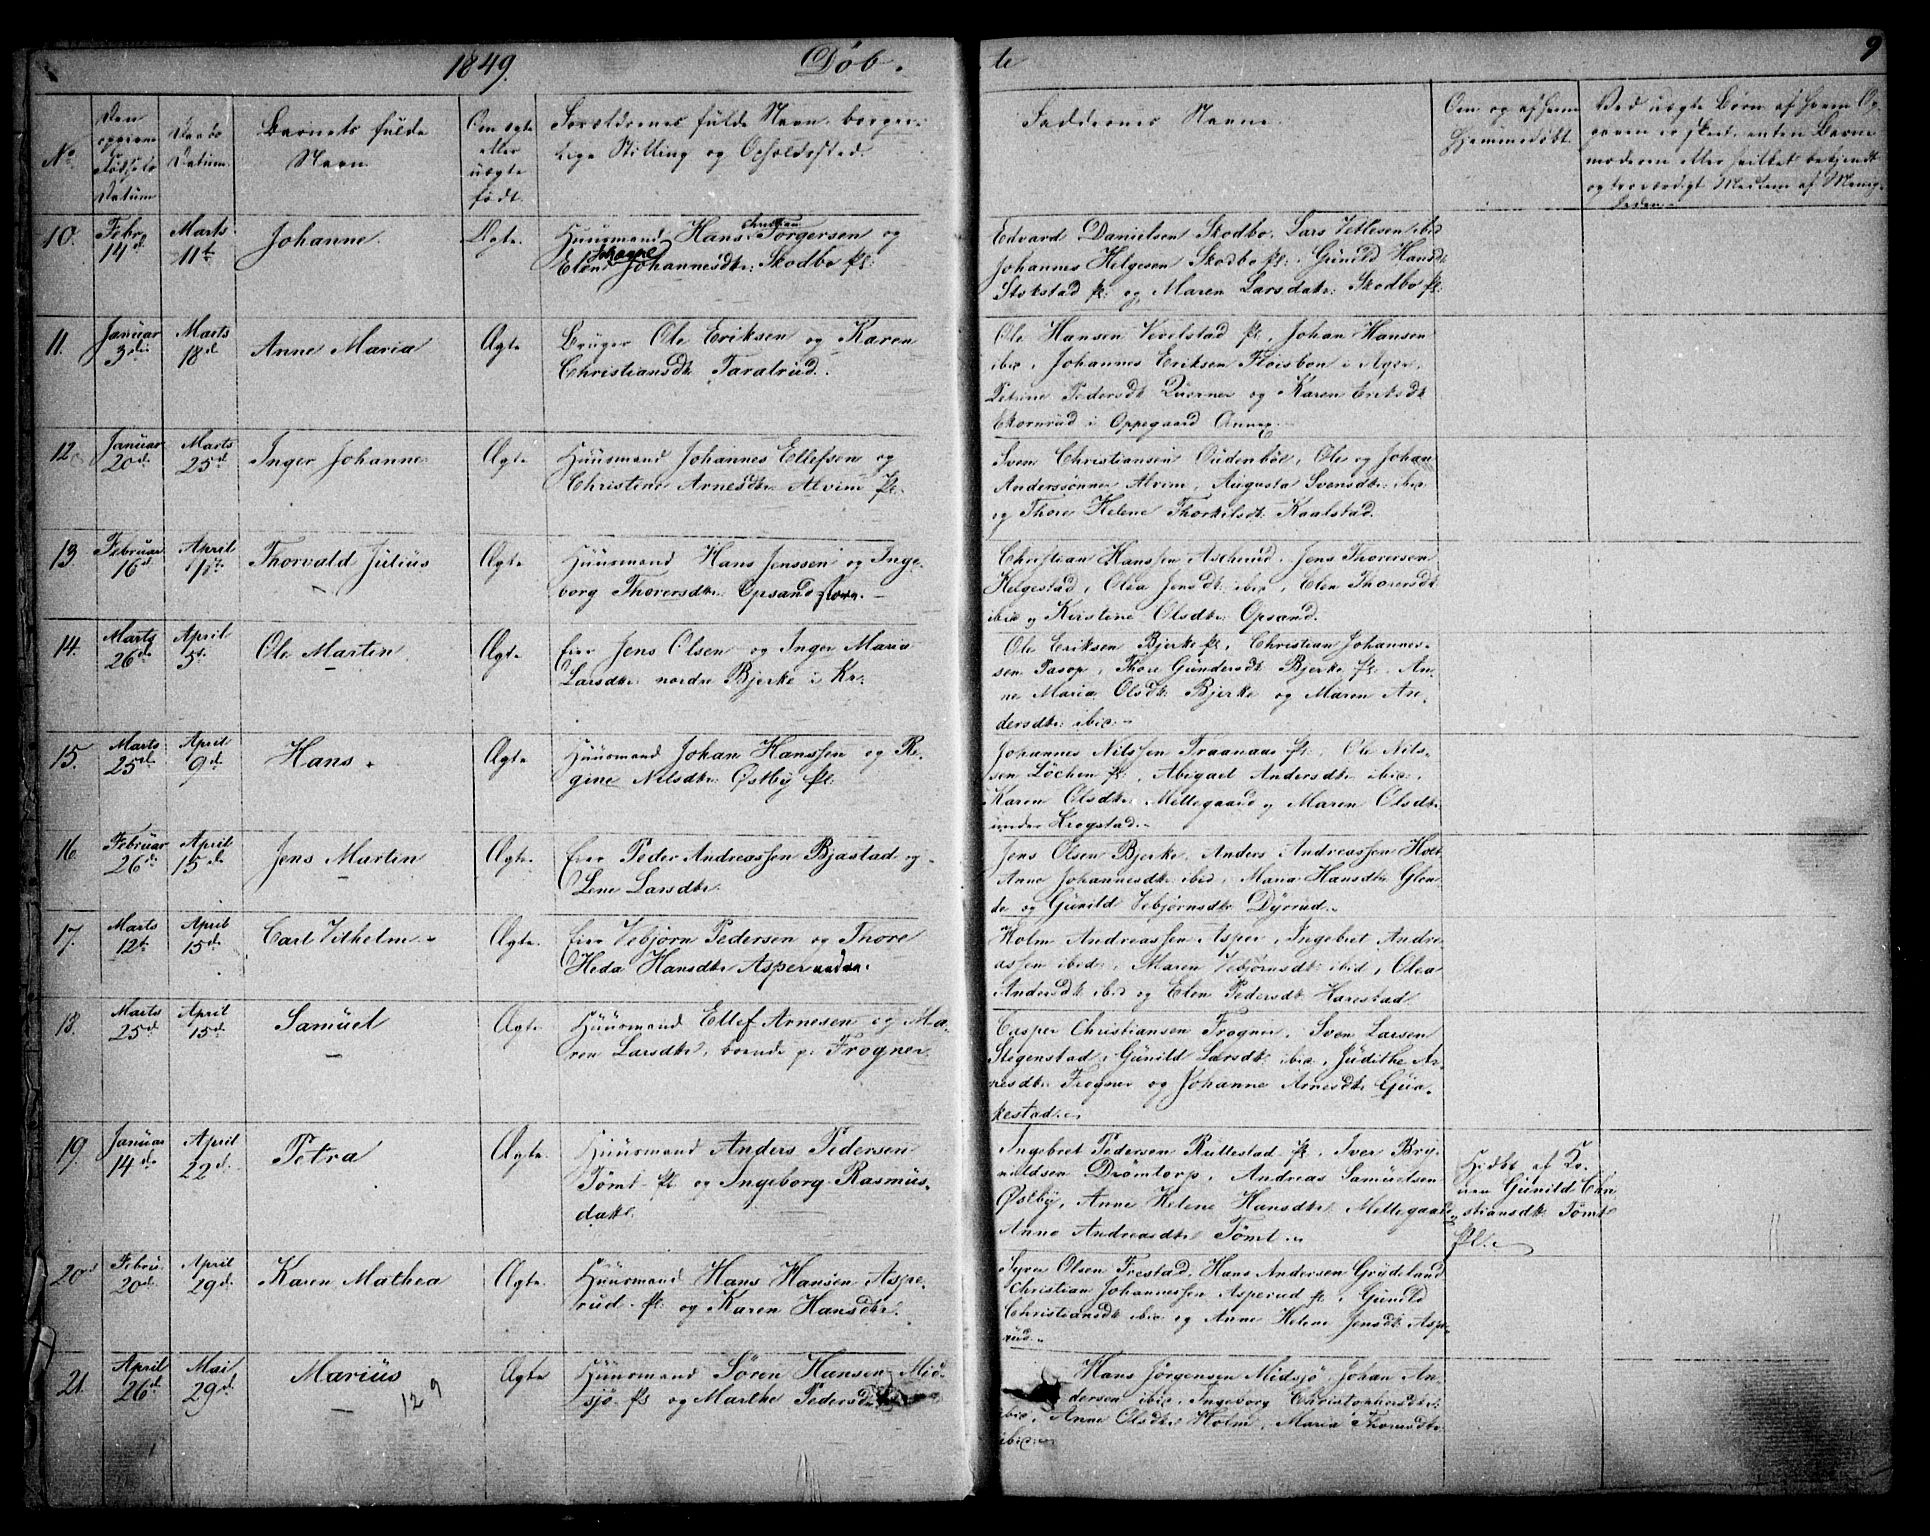 1849. Döb. te 9
No.
Den opgivne Fødsels Datum
Daabs Datum.
Barnets fulde Navn
Om ægte eller uægte født.
Forældrenes fulde Navn, borgerlige Stilling og Opholdssted.
Faddernes Navne.
Om og af hvem hjemmedøbt.
Ved uægte Børn af hvem Opgaven er skeet, enten Barnemoderen eller hvilket bekjendt og troværdigt Medlem af Menigheden.
10. Febr. 14d Marts 11te Johanne. Ægte. Huusmand Hans Christian Torgersen og
Elene Johanne Johannesdtr. Skodbo pl:
Edvard Danielsen Skodbo, Lars Vetlesen ibid
Johannes Helgesen Skodbo pl: Gunild Hansdt
Stokstad pl: og Maren Larsdatr. Skodbo pl.
11. Januar 3die Marts 18d Anne Maria Ægte Bruger Ole Eriksen og Karen
Christiansdt. Taralrud.
Ole Hansen Vevelstad pl., Johan Hansen
ibid, Johannes Eriksen Floisbon i Ager,
Petrine Pedersdt. Qværner og Karen Eriksdt
Ekornrud i Oppegaard Annex.
12. Januar 20de Marts 25d Inger Johanne Ægte Huusmand Johannes Ellefsen og
Christine Arnesdtr. Alvim pl.
Sven Christiansen Oudenböl, Ole og Johan
Anderssønner Alvim, Augusta Svensdtr. ibid
og Thore Helene Thorkilsdt: Kaalstad.
13. Februar 16d April 1ste Thorvald Julius Ægte Huusmand Hans Jenssen og Inge-
borg Thorersdtr. Opsand store.
Christian Hanssen Ascherud, Jens Thorersen
Helgestad, Olea Jensdt. ibid, Elen Thorersdt
ibid og Kirstine Olsdtr. Opsand.
14. Marts 26d April 5te Ole Martin. Ægte Eier Jens Olsen og Inger Maria
Larsdtr. nordre Bjerke i Kr.
Ole Eriksen Bjerke pl., Christian Johannes-
sen Tasop, Thore Gundersdt. Bjerke pl. An-
ne Maria Olsdt. Bjerke og Maren An-
dersdtr. ibid.
15. Marts 25d April 9d Hans. Ægte. Huusmand Johan Hanssen og Re-
gine Nilsdtr. Østby pl.
Johannes Nilssen Traanaas pl., Ole Nils-
sen Løchen pl., Abigael Andersdtr. ibid,
Karen Olsdtr. Mellegaard og Maren Olsdtr.
under Krogstad.
16. Februar 26de April 15de Jens Martin Ægte. Eier Peder Andreassen Bjastad og
Lene Larsdtr.
Jens Olsen Bjerke, Anders Andreassen Holt
Anne Johannesdtr. ibid, Maria Hansdtr. Glen-
de og Gunild Vebjørnsdtr. Dyrrud.
17. Marts 12te April 15d Carl Vilhelm. Ægte. Eier Vebjørn Pedersen og Thore
Heda Hansdtr. Asper nedre.
Holm Andreassen Asper, Ingebret Andre-
assen ibid, Maren Vebjørnsdt. ibid, Olea
Andersdt. ibid og Elen Pedersdt. Harestad
18. Marts 25d April 15d. Samuel Ægte Huusmand Ellef Arnesen og Ma-
ren Larsdtr, boende p. Frogner.
Casper Christiansen Frogner, Sven Larsen
Stegenstad, Gunild Larsdt. ibid, Judithe Ar-
nesdtr. Frogner og Johanne Arnesdtr. Gua-
kestad.
19. Januar 14de April 22d. Petra Ægte. Huusmand Anders Pedersen
Tømt pl. og Ingeborg Rasmus-
datr.
Ingebret Pedersen Rullestad pl., Iver Bry-
nildsen Drømtorp, Andreas Samuelsen
Østby, Anne Helene Hansdtr. Mellegaard og
Anne Andreasdtr. Tømt.
Hjdbt. af Ko-
nen Gunild Chri-
stiansdt. Tømt
pl.
20. Febru. 20d. April 29d. Karen Mathea Ægte. Huusmand Hans Hansen Aspe-
rud pl. og Karen Hansdtr.
Syver Olsen Frestad, Hans Andersen Grydeland
Christian Johannessen Asperud pl., Gunild
Christiansdt. ibid og Anne Helene Jensdt. Aspe-
rud.
21. April 26d Mai 29d. Marius Ægte Huusmand Søren Hansen Mid-
sjø pl og Marthe Pedersdtr.
129
Hans Jørgensen Midsjø, Johan An-
dersen ibid, Ingeborg Christophersdtr.
ibid, Anne Olsdtr. Holm, Maria Thoresdtr
ibid.